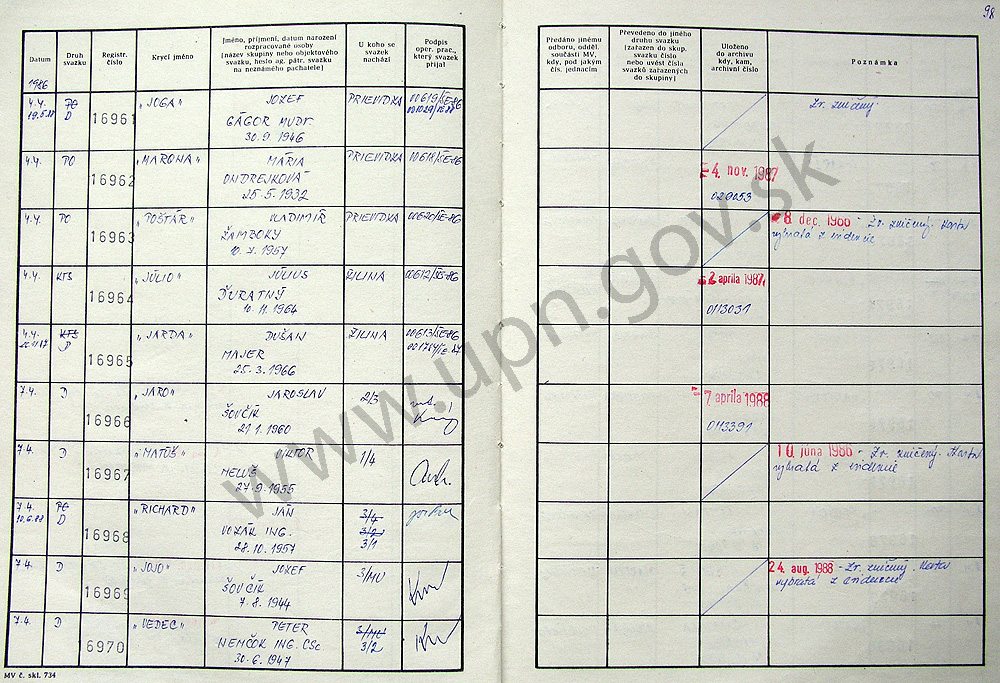 98
Datum
Druh svazku
Registr. číslo
Krycí jméno
Jméno, příjmení, datum narození rozpracované osoby (název skupiny nebo objektového svazku, heslo ag. pátr. svazku na neznámého pachatele)
U koho se svazek nachází
Podpis oper. prac., který svazek přijal
Předáno jinému odboru, odděl. součásti MV, kdy, pod jakým čís. jednacím
Převedeno do jiného druhu svazku (zařazen do skup. svazku číslo nebo uvést čísla svazků zařazených do skupiny)
Uloženo do archivu kdy, kam, archivní číslo
Poznámka
1986
4.4. PO 16961 „JOGA“ JOZEF PRIEVIDZA 00619/ŠE-86
19.5.88 D GÁGOR MUDr.
30.9.1946
Zv. zničený.
4.4. PO 16962 „MARONA“ MÁRIA PRIEVIDZA 00618/ŠE-86
ONDREJKOVÁ
25.5.1932
-4. nov. 1987
029053
4.4. PO 16963 „POŠTÁR“ VLADIMÍR PRIEVIDZA 00620/ŠE-86
ŽAMBOKY
10.7.1957
8. dec. 1986 - Zv. zničený. Karta
vybratá z evidencie
4.4. KTS 16964 „JÚLIO“ JÚLIUS ŽILINA 00612/ŠE-86
ĎURATNÝ
10.11.1964
2 apríla 1987
0113031
4.4. KTS 16965 „JARDA“ DUŠAN ŽILINA 00613/ŠE-86
D MAJER
25.3.1966
7.4. D 16966 „JARO“ JAROSLAV 2/3
ŠOVČÍK
21.1.1960
7 apríla 1988
0113391
7.4. D 16967 „MATÚŠ“ VIKTOR 1/4
MELUŠ
27.9.1955
10. júna 1986 - Zv. zničený. Karta
vybratá z evidencie
7.4. PO 16968 „RICHARD“ JÁN 3/4
10.6.88 D VOZÁR ING. 3/2
28.10.1957 3/1
7.4. D 16969 „JOJO“ JOZEF 3/MU
ŠOVČÍK
7.8.1944
24. aug. 1988 - Zv. zničený. Karta
vybratá z evidencie
7.4. D 6970 „VEDEC“ PETER 3/MU
NEMČOK ING. CSc. 3/2
30.6.1947
MV č. skl. 734
www.upn.gov.sk